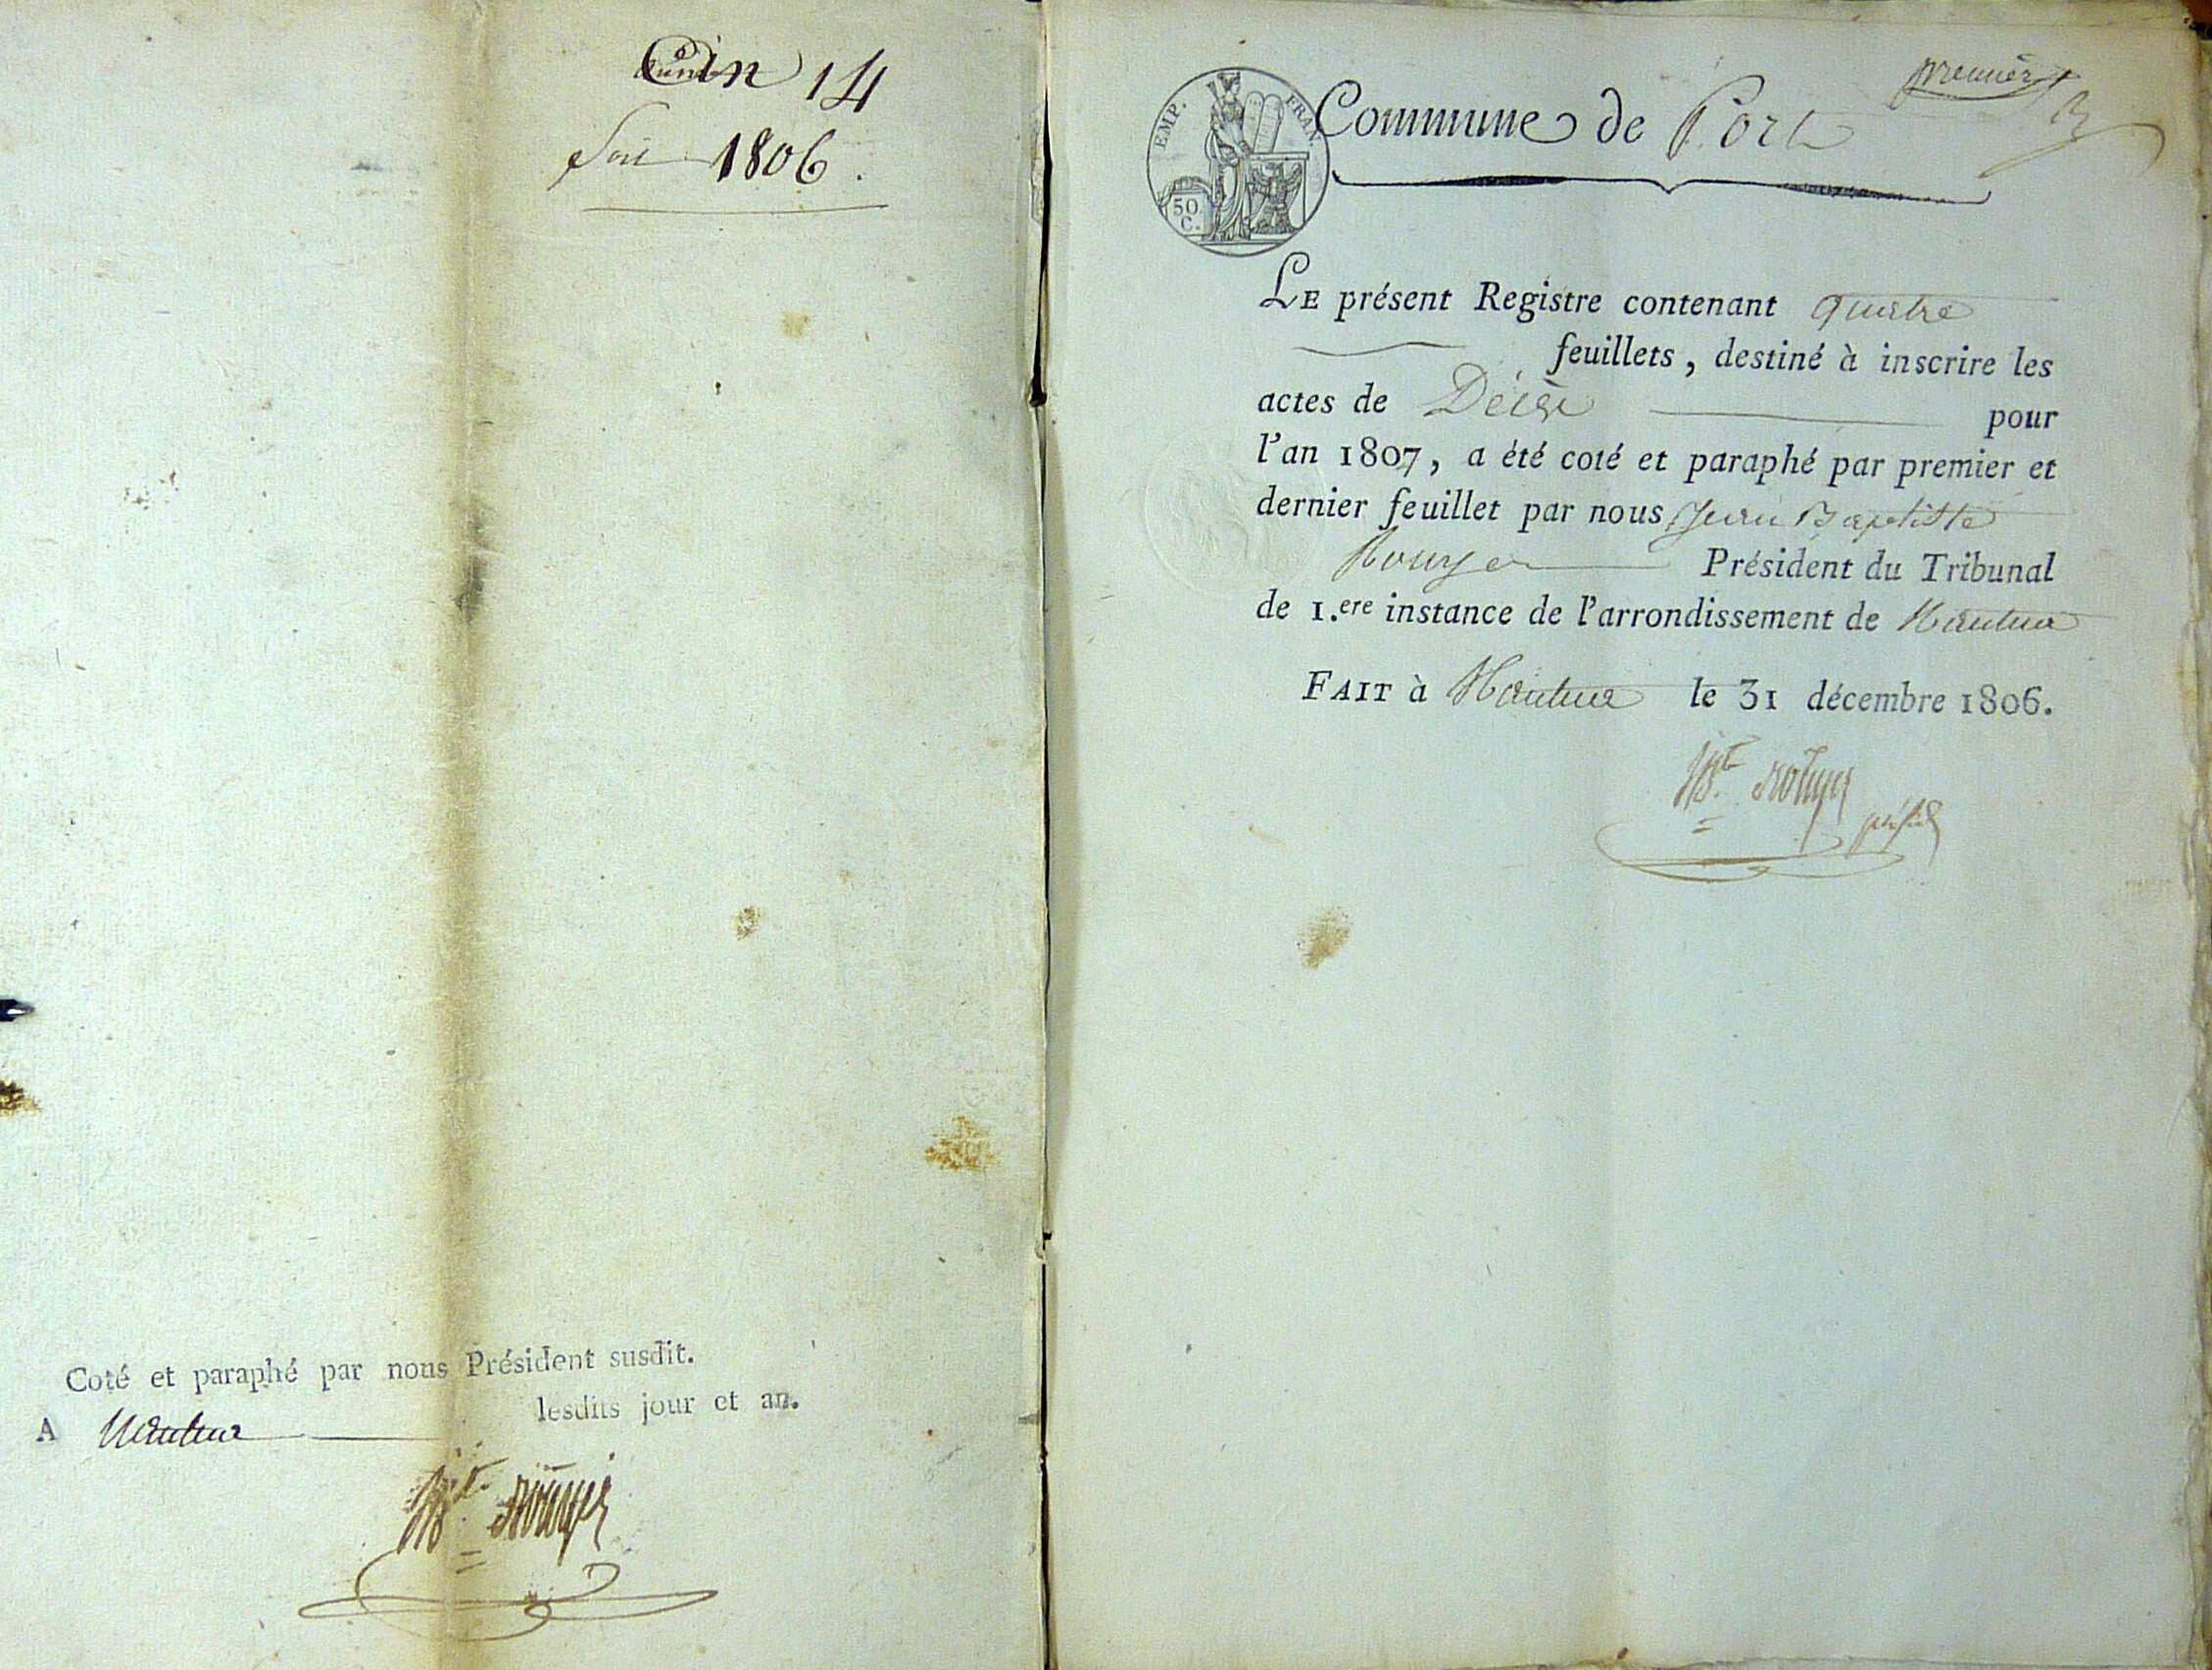 An 14
1806.
Coté et paraphé par nous Président susdit.
A Nantua lesdits jour et an.
Jn Bte Rouyer
premier
EMP. FRAN.
50
C.
Commune de Port
LE présent Registre contenant quatre
feuillets, destiné à inscrire les
actes de Décès pour
l'an 1807, a été coté et paraphé par premier et
dernier feuillet par nous Jean Baptiste
Rouyer Président du Tribunal
de 1.ere instance de l'arrondissement de Nantua
FAIT à Nantua le 31 décembre 1806.